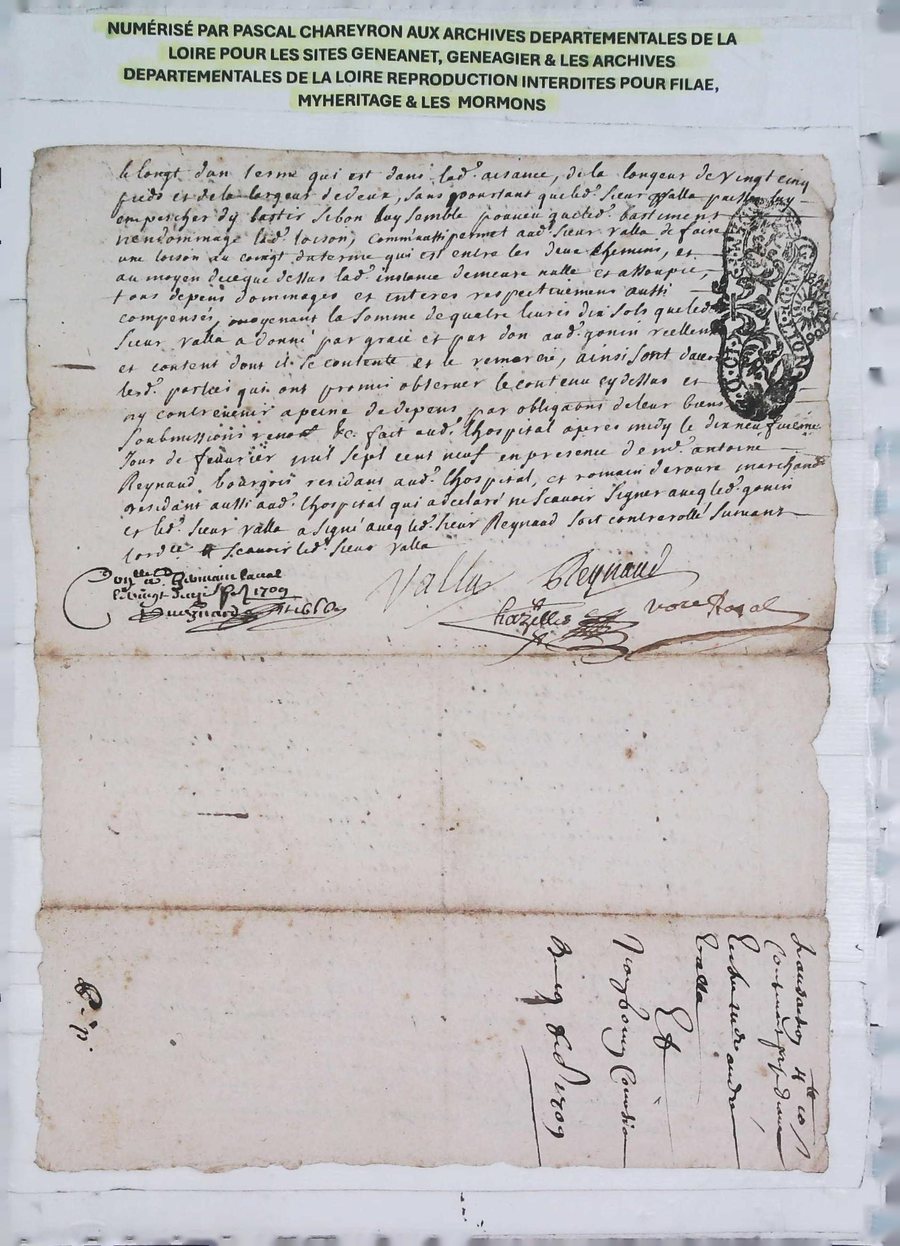 NUMÉRISÉ PAR PASCAL CHAREYRON AUX ARCHIVES DEPARTEMENTALES DE LA
LOIRE POUR LES SITES GENEANET, GENEAGIER & LES ARCHIVES
DEPARTEMENTALES DE LA LOIRE REPRODUCTION INTERDITES POUR FILAE,
MYHERITAGE & LES MORMONS
le longt dun terme qui est dans lad. aisance, de la longeur de vingt cinq
pieds et de la largeur de deux, sans pourtant que led. sieur Valla puisse luy
empescher dy bastir si bon luy semble pourveu que led. bastiment
nendommage lad. loison, comm'aussi permet aud. sieur valla de faire
une loison au coingt du terme qui est entre les deux chemins, et
au moyen de ce que dessus lad. instance demeure nulle et assoupie,
tous depens dommages et interes respectivemens aussi
compensés, moyenant la somme de quatre livres dix sols que led.
sieur valla a donné par grace et par don aud. gonin reellem
et content dont il se contente et le remercie, ainsi sont d
lesd. parties qui ont promis observer le contenu cy dessus et
ny contrevenir a peine de depens par obligaons de leur biens
soubmissions renon &c. fait aud. lhospital apres midy le dix neufvieme
jour de fevvrier mil sept cent neuf en presence de mr. antoine
Reynaud bourgois residant aud. lhospital, et romain deroure marchand
residant aussi aud. lhospital qui a declaré ne scavoir signer aveq led. gonin
et led. sieur valla a signé aveq led. sieur Reynaud soit controrollé suivant
lord.ce scavoir led. sieur valla
Con.llé a St Germain laval
le vingt 1709
Valla Reynaud
chazelles no.re Royal
Transaction
Valla
Et
1709